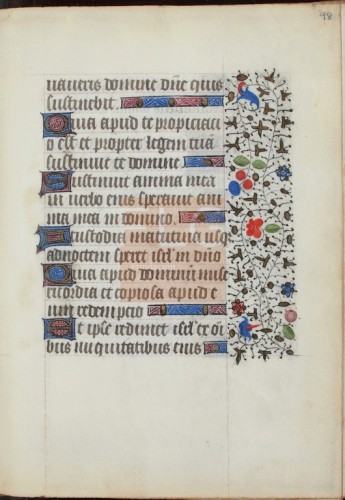 98
uaueris domine dñe quis
sustinebit.
Quia apud te propiciacio
o est et propter legem tuã
sustinui te domine
Sustinuit anima mea
in uerbo eius sperauit ani
ma mea in domino.
A custodia matutina usq
ad noctem speret isrl in dño
Quia apud dominum mise
ricordia et copiosa apud e
um redempcio
Et ipse redimet isrl ex om
ibus iniquitatibus eius